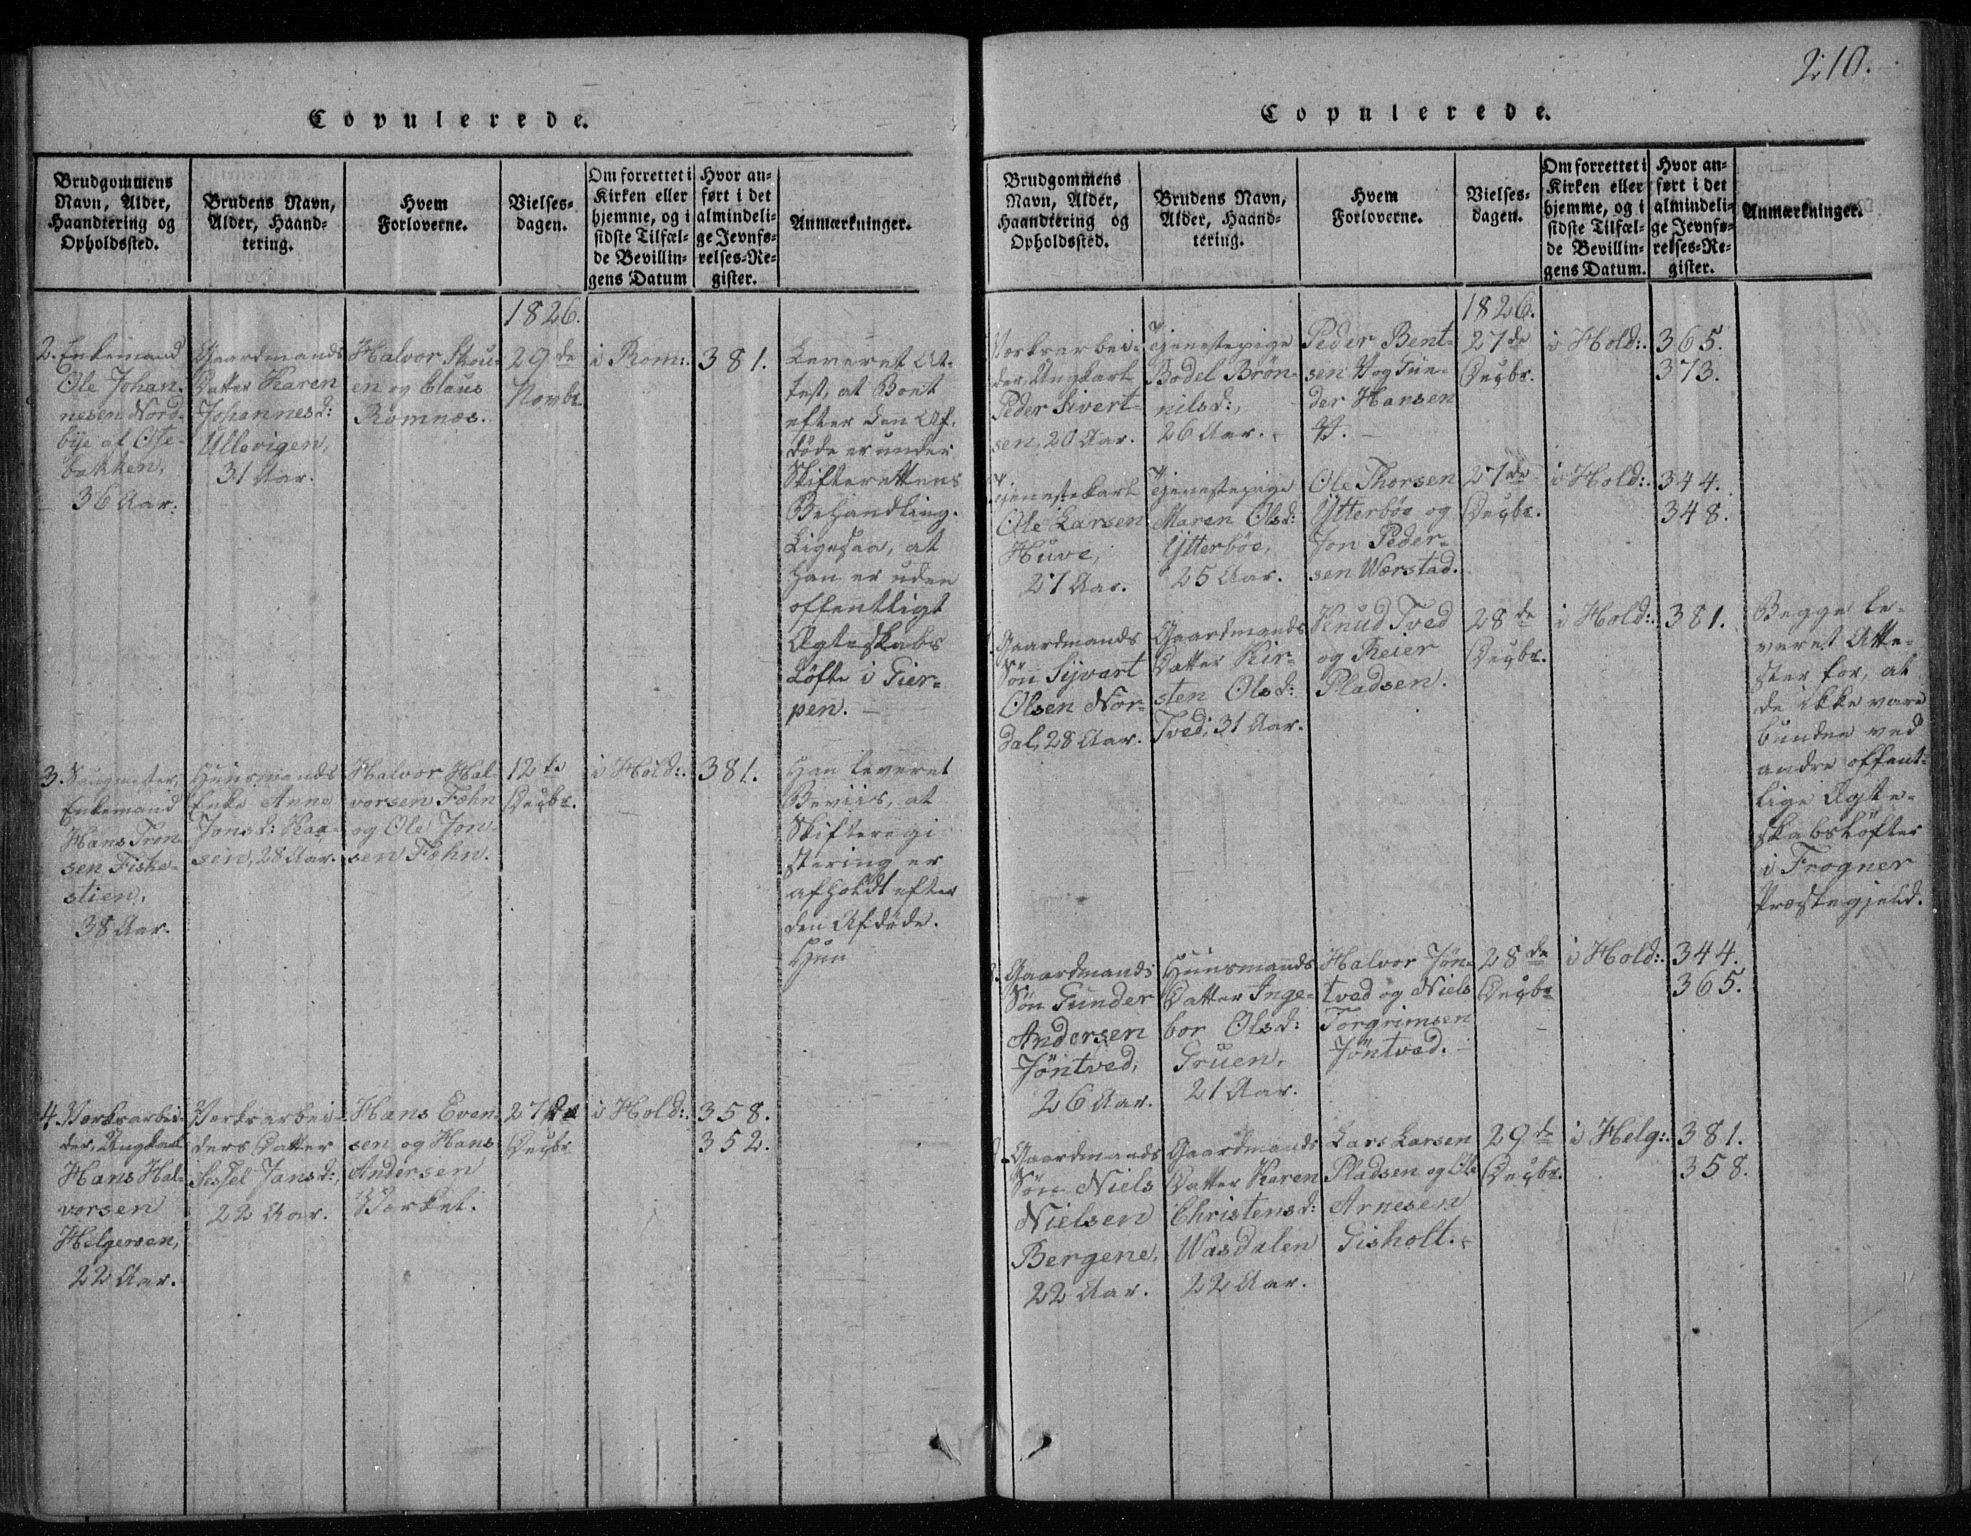 210.
Copulerede.
Brudgommens
Navn, Alder,
Haandtering og
Opholdssted.
Brudens Navn,
Alder, Haand-
tering.
Hvem
Forloverne.
Vielses-
dagen.
Om forrettet i
Kirken eller
hjemme, og i
sidste Tilfæl-
de Bevillin-
gens Datum
Hvor an-
ført i det
almindeli-
ge Jevnfø-
relses-Re-
gister.
Anmærkninger.
1826.
2. Enkemand
Ole Johan-
nesen Nord-
bye af Ose-
bakken,
36 Aar.
Gaardmands
Datter Karen
Johannesd:
Ullevigen,
31 Aar.
Halvor Skou-
en og Claus
Romnæs.
29de
Novbr.
i Rom:.
381.
Leveret At-
test, at Boet
efter den Af-
døde er under
Skifterettens
Behandling.
Ligesaa, at
han er uden
offentligt
Ægteskabs
Løfte i Gier-
pen. —
3. Saugmester,
Enkemand
Hans Tron-
sen Fiske-
stien,
38 Aar.
Huusmands
Enke Anne
Jonsd: Kaa-
sen, 28 Aar.
Halvor Hal-
vorsen Fæhn
og Ole Jon-
sen Fæhn.
12te
Decbr.
i Hold:.
381.
Han leveret
Beviis, at
Skifteregi
stering er
afholdt efter
den Afdøde.
Hun
4. Værksarbei-
der, Ungkarl
Hans Hal-
vorsen
Helgersen,
22 Aar.
Værksarbei-
ders Datter
Sissel Jansd:,
22 Aar.
Hans Even-
sen og Hans
Andersen
Værket.
27de
Decbr
i Hold:.
358.
352.
Copulerede.
Brudgommens
Navn, Alder,
Haandtering og
Opholdssted.
Brudens Navn,
Alder, Haand-
tering.
Hvem
Forloverne.
Vielses-
dagen.
Om forrettet i
Kirken eller
hjemme, og i
sidste Tilfæl-
de Bevillin-
gens Datum.
Hvor an-
ført i det
almindeli-
ge Jevnfø-
relses-Re-
gister.
Anmærkninger.
1826.
Værksarbei-
der, Ungkarl
Peder Sivert-
sen, 20 Aar.
Tjenestepige
Bodel Brøn-
nilsd:,
26 Aar.
Peder Bent-
sen V og Gun-
der Hansen
V. —
27de
Decbr.
i Hold:.
365.
373.
Tjenestekarl
Ole Larsen
Huve,
27 Aar.
Tjenestepige
Maren Olsd:
Ytterbøe,
25 Aar.
Ole Thorsen
Ytterbøe og
Jon Peder-
sen Wærstad.
27de
Decbr.
i Hold:.
344.
348.
Gaardmands
Søn Syvart
Olsen Nor-
dal, 28 Aar.
Gaardmands
Datter Kir-
sten Olsd:
Tved, 31 Aar.
Knud Tved
og Reier
Pladsen.
28de
Decbr.
i Hold:.
381.
Begge le-
veret Atte-
ster for, at
de ikke vare
bunden ved
andre offent-
lige Ægte-
skabsløfter
i Frogner
Præstegjeld.
Gaardmands
Søn Gunder
Andersen
Jøntved,
26 Aar.
Huusmands
Datter Inge-
bor Olsd:
Gruen,
21 Aar.
Halvor Jøn-
tved og Niels
Torgrimsen
Jøntved. —
28de
Decbr
i Hold:.
344.
365.
Gaardmands
Søn Niels
Nielsen
Bergene,
22 Aar.
Gaardmands
Datter Karen
Christensd:
Wasdalen
22 Aar.
Lars Larsen
Pladsen og Ole
Arnesen
Gisholt.
29de
Decbr.
i Helg:.
381.
358.